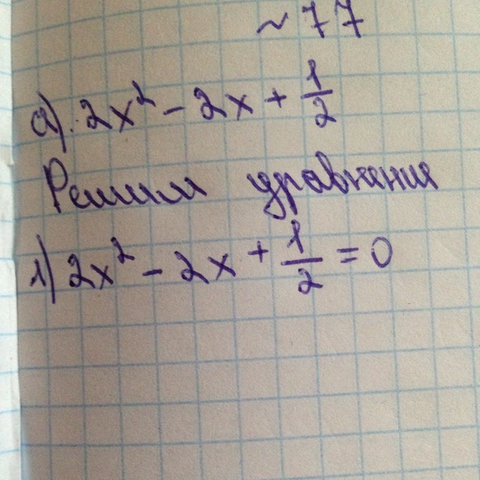 ~ 77
а). 2x² - 2x + 1/2
Решим уравнения
1) 2x² - 2x + 1/2 = 0